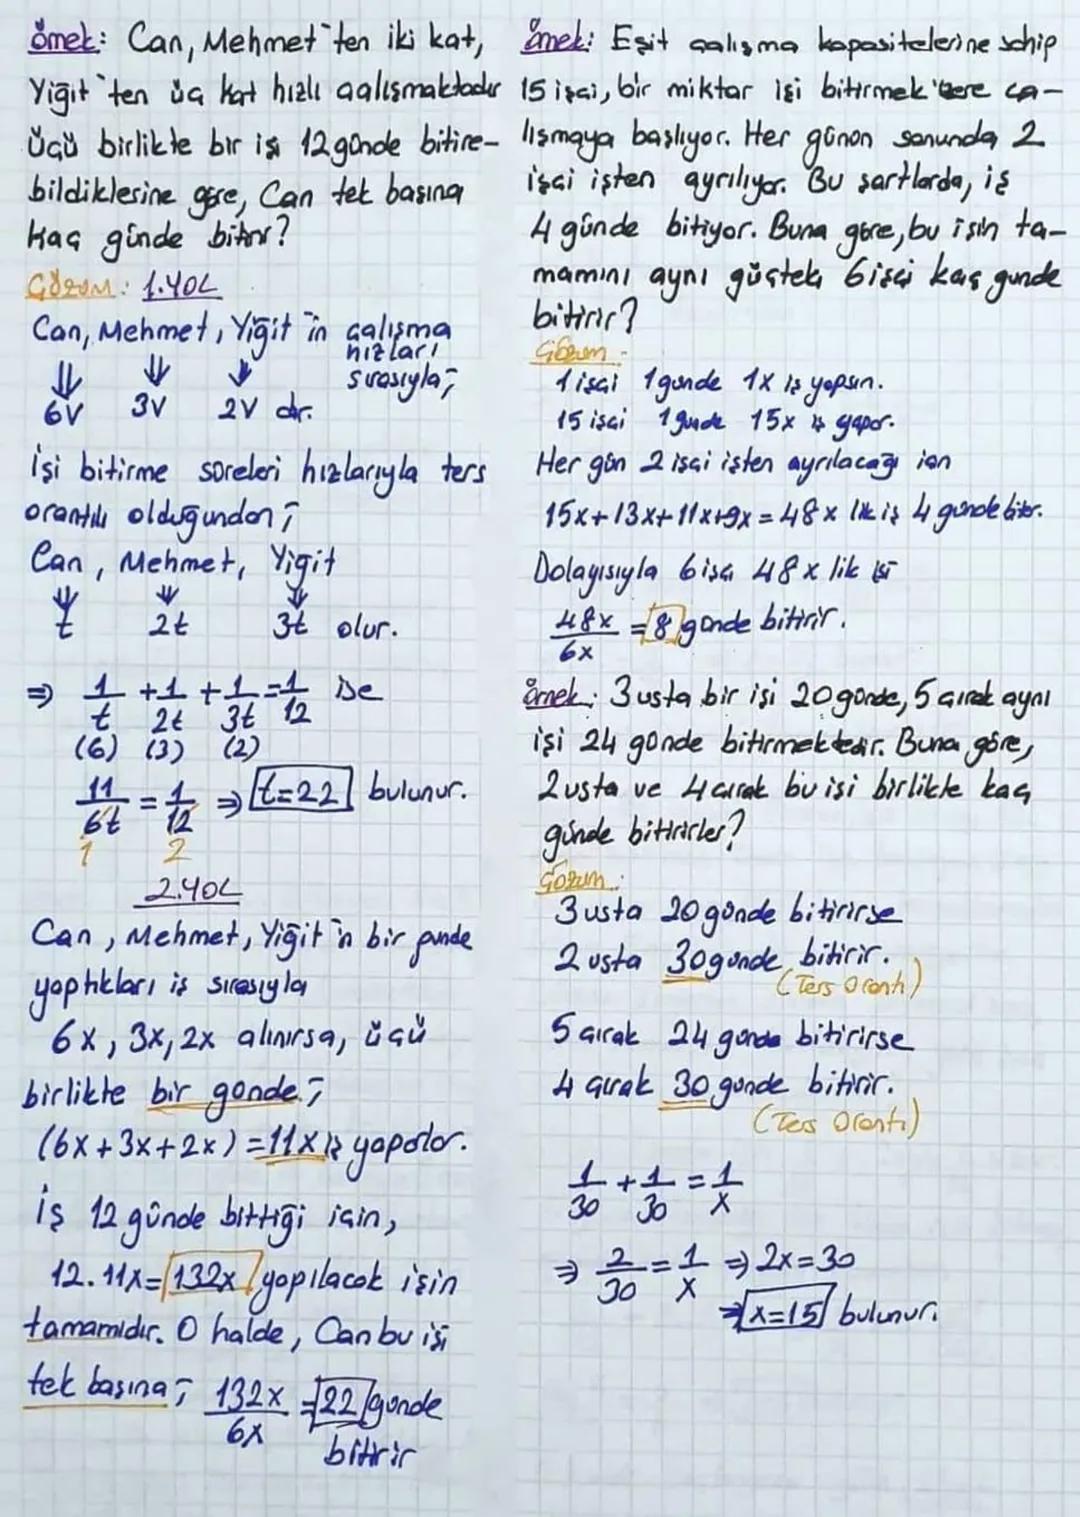 Örnek: Can, Mehmet'ten iki kat,
Yiğit'ten üç kat hızlı çalışmaktadır
Üçü birlikte bir işi 12 günde bitire-
bildiklerine göre, Can tek başına
kaç günde bitirir?
Çözüm: 1.YOL
Can, Mehmet, Yiğit'in çalışma
hızları
sırasıyla;
6V 3V 2V dir.
İşi bitirme süreleri hızlarıyla ters
orantılı olduğundan;
Can, Mehmet, Yiğit
t 2t 3t olur.
⇒ 1/t + 1/2t + 1/3t = 1/12 ise
(6) (3) (2)
11/6t = 1/12 ⇒ t=22 bulunur.
1 2
2.YOL
Can, Mehmet, Yiğit'in bir günde
yaptıkları iş sırasıyla
6x, 3x, 2x alınırsa, üçü
birlikte bir günde;
(6x+3x+2x)=11x iş yaparlar.
İş 12 günde bittiği için,
12.11x=132x yapılacak işin
tamamıdır. O halde, Can bu işi
tek başına; 132x/6x = 22 günde
bitirir
Örnek: Eşit çalışma kapasitelerine sahip
15 işçi, bir miktar işi bitirmek üzere ça-
lışmaya başlıyor. Her günün sonunda 2
işçi işten ayrılıyor. Bu şartlarda, iş
4 günde bitiyor. Buna göre, bu işin ta-
mamını aynı güçteki 6 işçi kaç günde
bitirir?
Çözüm:
1 işçi 1 günde 1x iş yapsın.
15 işçi 1 günde 15x iş yapar.
Her gün 2 işçi işten ayrılacağı için
15x+13x+11x+9x=48x lik iş 4 günde biter.
Dolayısıyla 6 işçi 48x lik işi
48x/6x = 8 günde bitirir.
Örnek: 3 usta bir işi 20 günde, 5 çırak aynı
işi 24 günde bitirmektedir. Buna göre,
2 usta ve 4 çırak bu işi birlikte kaç
günde bitirirler?
Çözüm:
3 usta 20 günde bitirirse
2 usta 30 günde bitirir.
(Ters Orantı)
5 çırak 24 günde bitirirse
4 çırak 30 günde bitirir.
(Ters Orantı)
1/30 + 1/30 = 1/x
⇒ 2/30 = 1/x ⇒ 2x=30
⇒ x=15 bulunur.